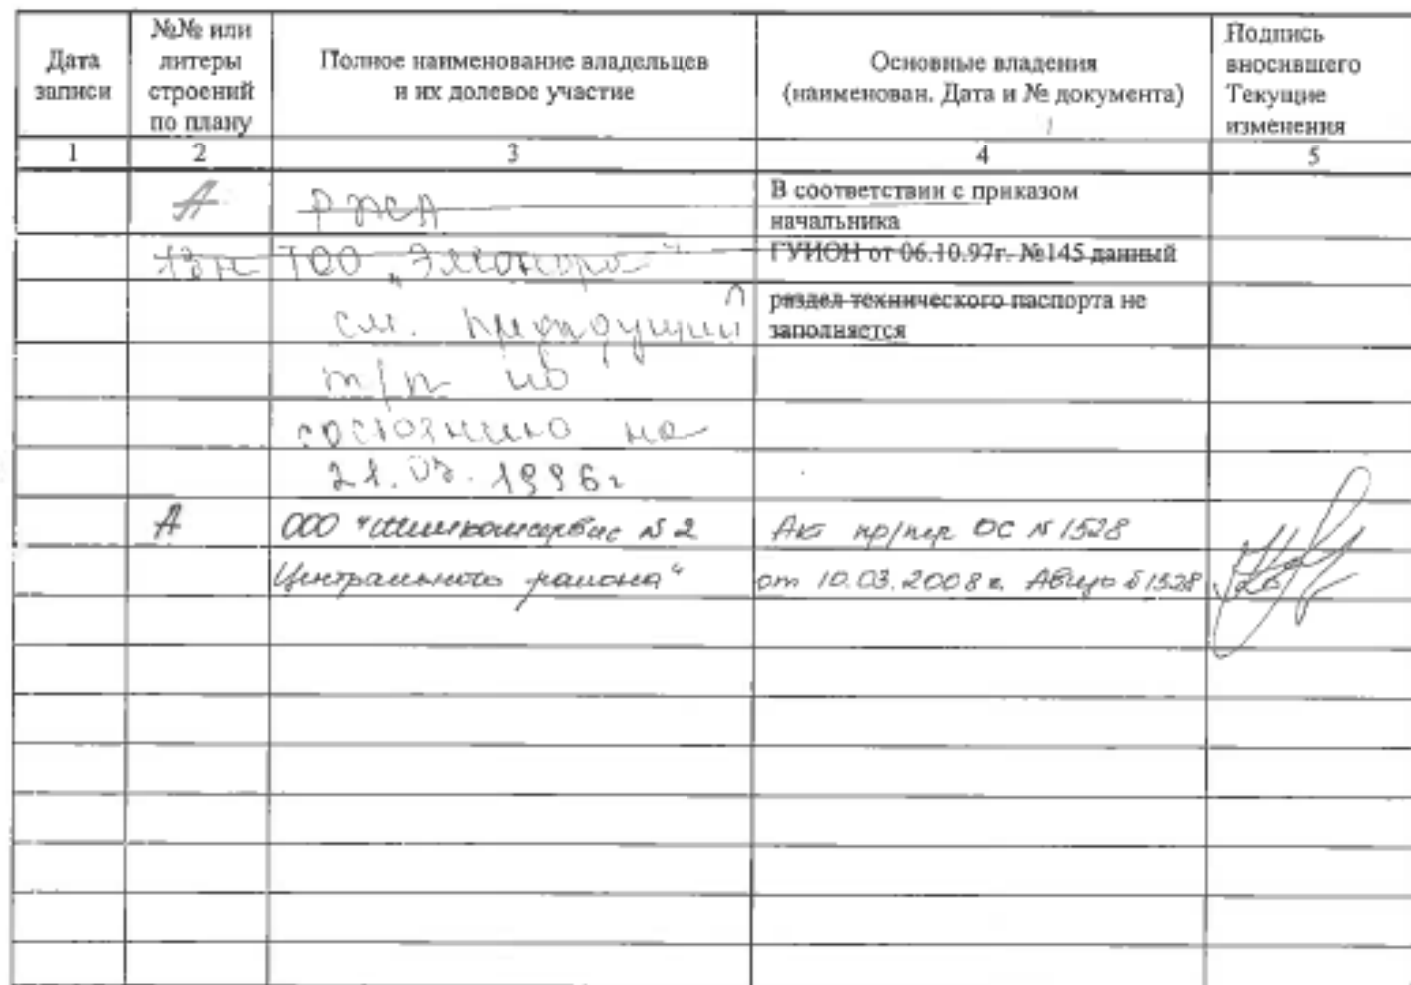 Дата записи
№№ или литеры строений по плану
Полное наименование владельцев и их долевое участие
Основные владения (наименован. Дата и № документа)
Подпись вносившего Текущие изменения
1 2 3 4 5
А РЖА В соответствии с приказом
начальника
13н ТОО „Элеонора" ГУИОН от 06.10.97г. №145 данный
раздел технического паспорта не
см. предыдущий заполняется
т/п по
состоянию на
21.03.1996г
А ООО "Жилкомсервис №2 Акт пр/пер ОС №1528
Центрального района" от 10.03.2008г. Авизо №1528